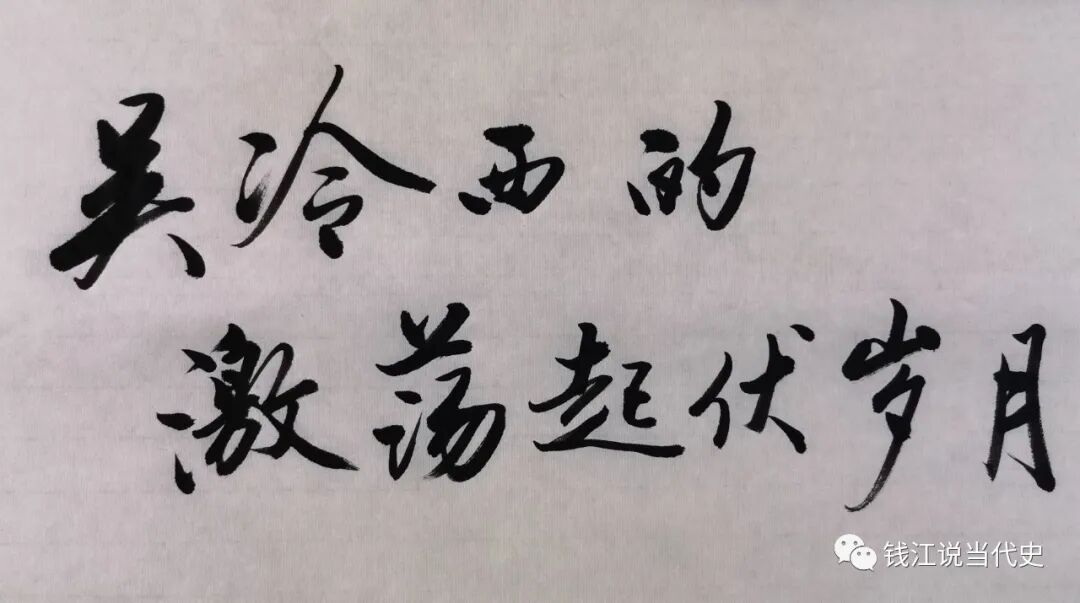 吴冷西的
激荡起伏岁月
钱江说当代史